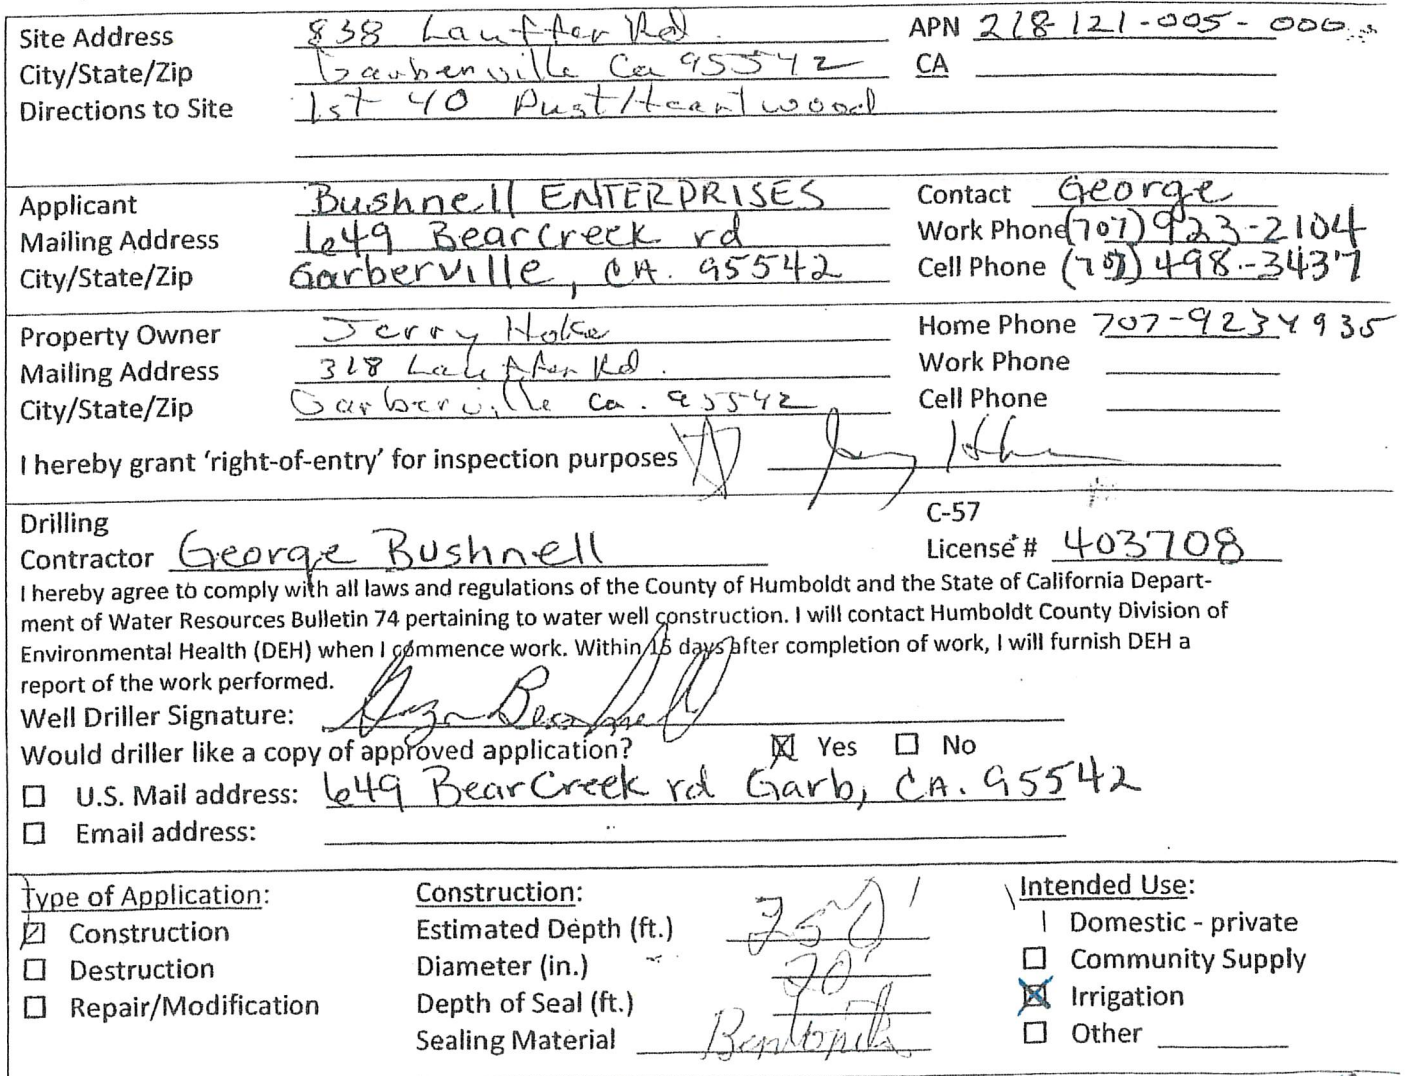 Site Address 838 Lauffer Rd. APN 218-121-005-000
City/State/Zip Garberville Ca 95542 CA
Directions to Site 1st 40 Past/Heartwood
Applicant Bushnell ENTERPRISES Contact George
Mailing Address 649 Bearcreek rd Work Phone (707) 923-2104
City/State/Zip Garberville, CA. 95542 Cell Phone (707) 498-3437
Property Owner Jerry Home Phone 707-9234935
Mailing Address 318 Lauffer Rd. Work Phone
City/State/Zip Garberville Ca. 95542 Cell Phone
I hereby grant 'right-of-entry' for inspection purposes
Drilling C-57
Contractor George Bushnell License # 403708
I hereby agree to comply with all laws and regulations of the County of Humboldt and the State of California Depart-
ment of Water Resources Bulletin 74 pertaining to water well construction. I will contact Humboldt County Division of
Environmental Health (DEH) when I commence work. Within 15 days after completion of work, I will furnish DEH a
report of the work performed.
Well Driller Signature: George Bushnell
Would driller like a copy of approved application? Yes No
U.S. Mail address: 649 BearCreek rd Garb, CA. 95542
Email address:
Type of Application: Construction: Intended Use:
Construction Estimated Depth (ft.) 250' Domestic - private
Destruction Diameter (in.) Community Supply
Repair/Modification Depth of Seal (ft.) 20' Irrigation
Sealing Material Bentonite Other